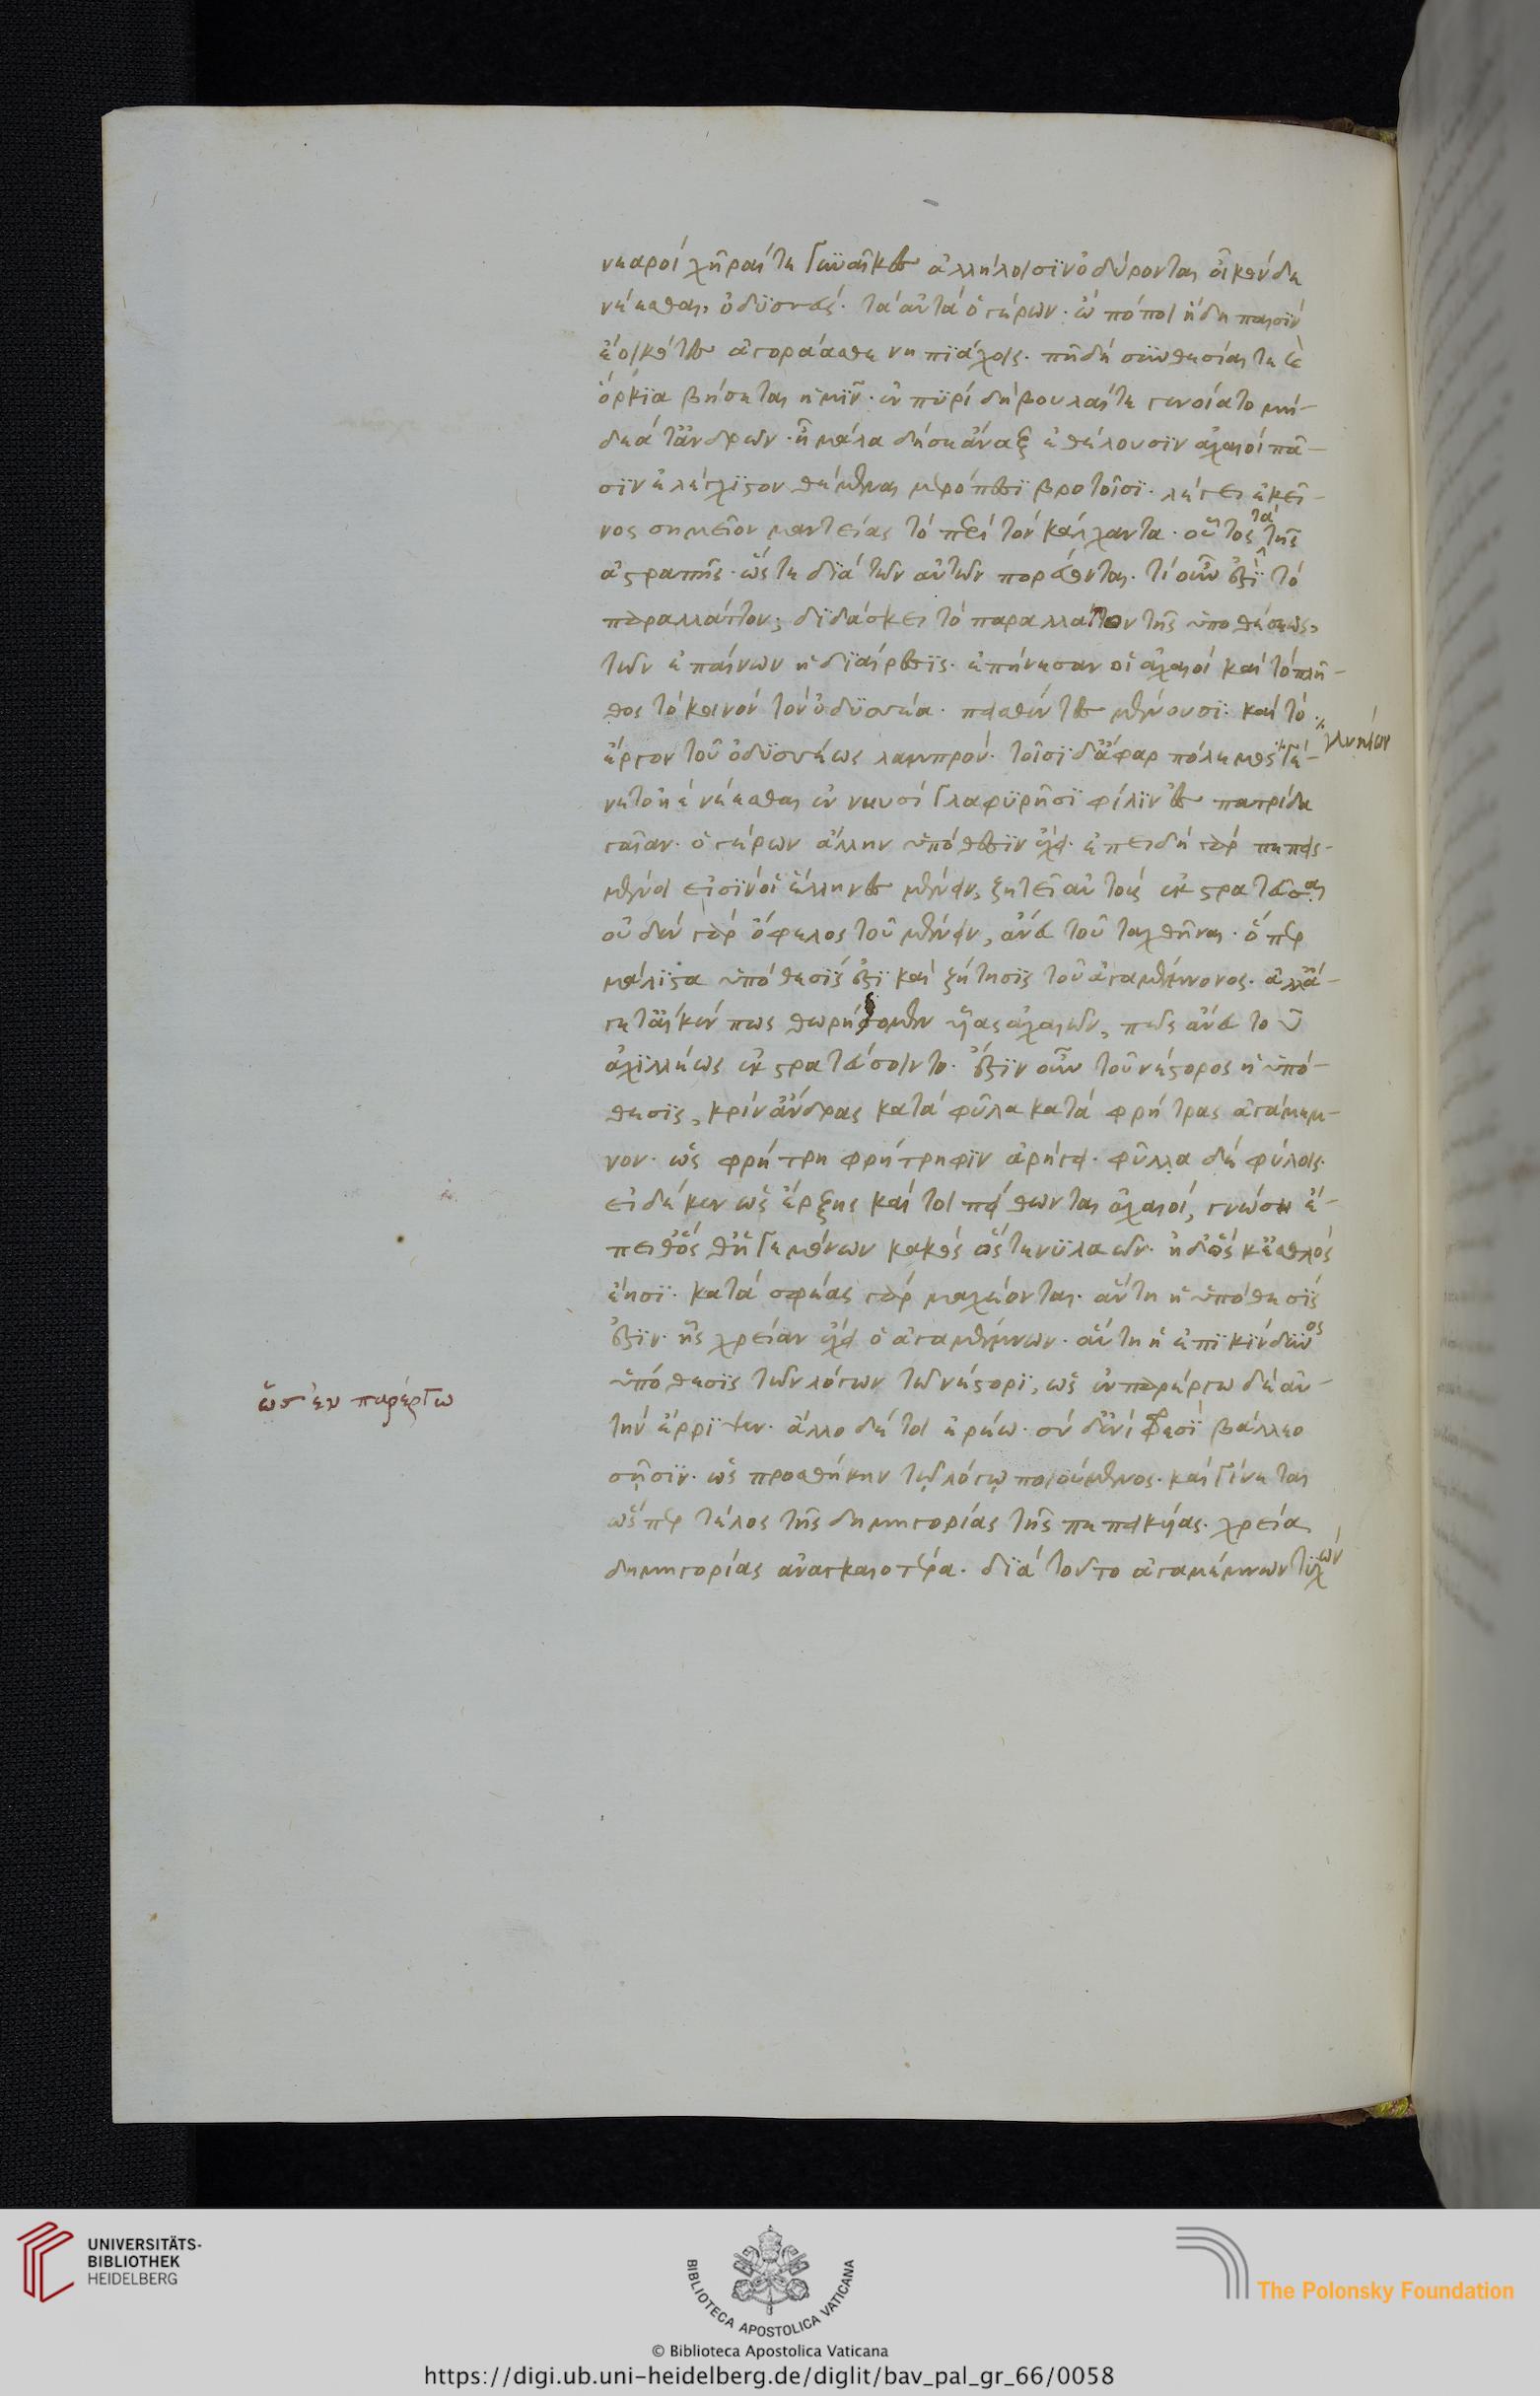 νεαροὶ χῆραί τε γυναῖκες ἀλλήλοισιν ὀδύρονται οἶκόνδε
νέεσθαι, ὀδυσσεύς. τὰ αὐτὰ ὁ γέρων. ὦ πόποι ἤδη παισὶν
ἐοικότες ἀγοράασθε νηπιάχοις. πῆ δὴ συνθεσίαι τε καὶ
ὅρκια βήσεται ἡμῖν. ἐν πυρὶ δὴ βουλαί τε γενοίατο μή-
δεά τ' ἀνδρῶν. ἦ μάλα δή σε ἄναξ ἐθέλουσιν ἀχαιοὶ πᾶ-
σιν ἐλέγχιστον θέμεναι μερόπεσι βροτοῖσι. λέγει ἐκεῖ-
νος σημεῖον μαντείας τὸ περὶ τὸν κάλχαντα. οὗτος τὰ τῆς
ἀστραπῆς. ὥστε διὰ τῶν αὐτῶν πορεύονται. τί οὖν ἐστὶ τὸ
παραλλάττον; διδάσκει τὸ παραλλάττον τῆς ὑποθέσεως,
τῶν ἐπαίνων ἡ διαίρεσις. ἐπήνεσαν οἱ ἀχαιοὶ καὶ τὸ πλῆ-
θος τὸ κοινὸν τὸν ὀδυσσέα. πεισθέντες μένουσι. καὶ τὸ
ἔργον τοῦ ὀδυσσέως λαμπρόν. τοῖσι δ' ἄφαρ πόλεμος γλυκίων γέ-
νετο ἠὲ νέεσθαι ἐν νηυσὶ γλαφυρῆσι φίλην ἐς πατρίδα
γαῖαν. ὁ γέρων ἄλλην ὑπόθεσιν ἔχει. ἐπειδὴ γὰρ πεπεισ-
μένοι εἰσὶν οἱ ἕλληνες μένειν, ζητεῖ αὐτοὺς ἐκστρατεῦσαι
οὐδὲν γὰρ ὄφελος τοῦ μένειν, ἄνευ τοῦ ταχθῆναι. ὅπερ
μάλιστα ὑπόθεσίς ἐστι καὶ ζήτησις τοῦ ἀγαμέμνονος. ἀλλ' ἄ-
γετ' αἴ κέν πως θωρήξομεν υἷας ἀχαιῶν, πῶς ἄνευ τοῦ
ἀχιλλέως ἐκστρατεύσοιντο. ἔστιν οὖν τοῦ νέστορος ἡ ὑπό-
θεσις, κρῖν' ἄνδρας κατὰ φῦλα κατὰ φρήτρας ἀγάμεμ-
νον. ὡς φρήτρη φρήτρηφιν ἀρήγει. φῦλλα δὲ φύλοις.
εἰ δέ κεν ὣς ἔρξης καί τοι πείθωνται ἀχαιοί, γνώση ἔ-
πειθ' ὅς θ' ἡγεμόνων κακὸς ὅς τέ νυ λαῶν. ἠδ' ὅς κ' ἐσθλὸς
ἔησι. κατὰ σφέας γὰρ μαχέονται. αὕτη ἡ ὑπόθεσίς
ἐστιν. ἧς χρείαν ἔχει ὁ ἀγαμέμνων. αὕτη ἡ ἐπικίνδυνος
ὑπόθεσις τῶν λόγων τῶ νέστορι, ὡς ἐν παρέργω δὲ αὐ-
τὴν ἔρριψεν. ἄλλο δέ τοι ἐρέω. σὺ δ' ἐνὶ φρεσὶ βάλλεο
σῆσιν. ὡς προσθήκην τῷ λόγῳ ποιούμενος. καὶ γίνεται
ὥσπερ τέλος τῆς δημηγορίας τῆς πεπεικυίας. χρεία
δημηγορίας ἀναγκαιοτέρα. διὰ τοῦτο ἀγαμέμνων τυχών
ὡς ἐν παρέργω
UNIVERSITÄTS-
BIBLIOTHEK
HEIDELBERG
BIBLIOTECA APOSTOLICA VATICANA
The Polonsky Foundation
© Biblioteca Apostolica Vaticana
https://digi.ub.uni-heidelberg.de/diglit/bav_pal_gr_66/0058